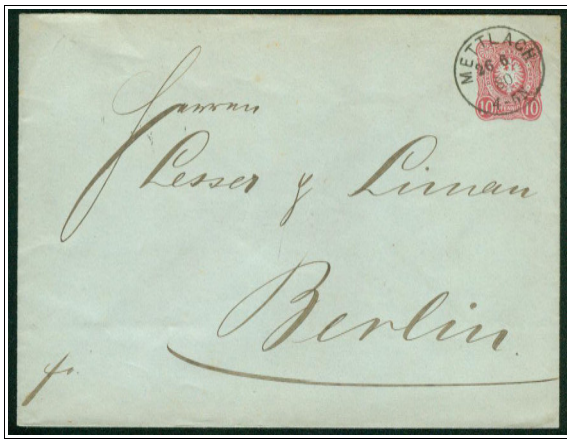 METTLACH
26 6.
80.
4-5N
10 10
Herren
Lesser & Liman
Berlin.
fr.